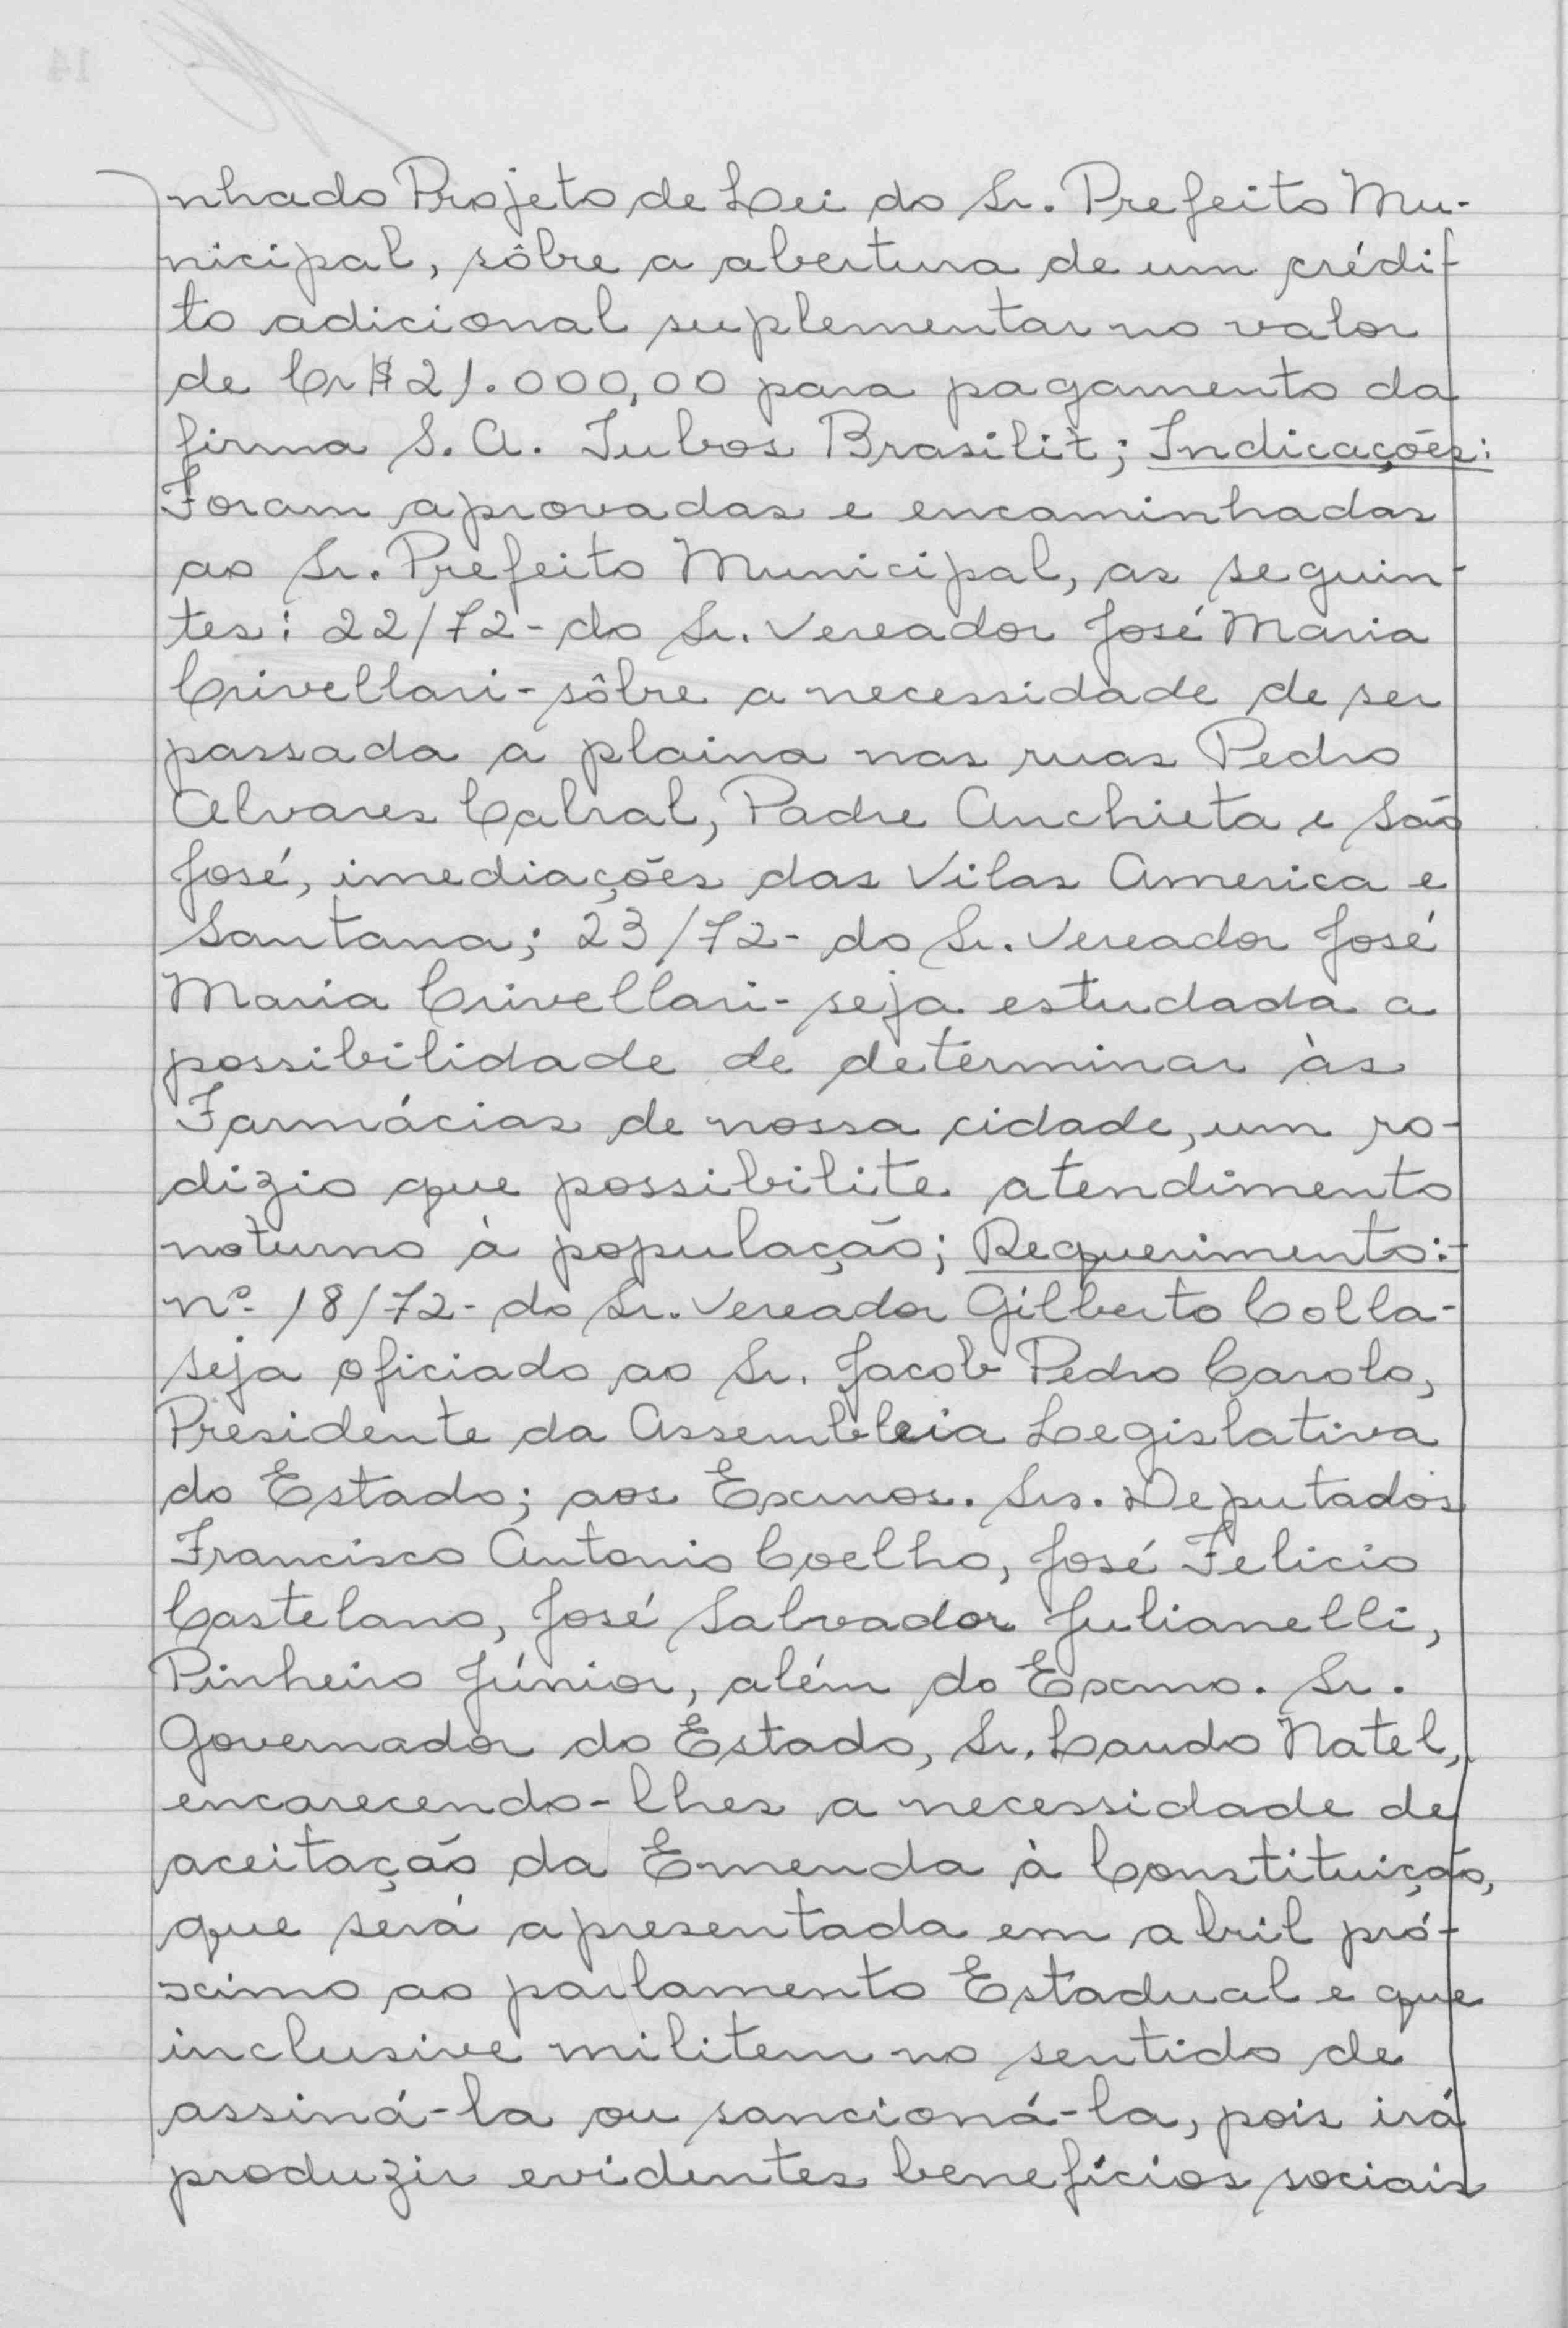 nhado Projeto de Lei do Sr. Prefeito Mu-
nicipal, sôbre a abertura de um crédi-
to adicional suplementar no valor
de Cr$21.000,00 para pagamento da
firma S.A. Tubos Brasilit; Indicações:
Foram aprovadas e encaminhadas
ao Sr. Prefeito Municipal, as seguin-
tes: 22/72- do Sr. Vereador José Maria
Crivellari- sôbre a necessidade de ser
passada a plaina nas ruas Pedro
Alvares Cabral, Padre Anchieta e São
José, imediações das Vilas America e
Santana; 23/72- do Sr. Vereador José
Maria Crivellari- seja estudada a
possibilidade de determinar às
Farmácias de nossa cidade, um ro-
dizio que possibilite atendimento
noturno à população; Requerimento:-
nº 18/72- do Sr. Vereador Gilberto Colla-
seja oficiado ao Sr. Jacob Pedro Carolo,
Presidente da Assembleia Legislativa
do Estado; aos Exmos. Srs. Deputados
Francisco Antonio Coelho, José Felicio
Castelano, José Salvador Julianelli,
Pinheiro Júnior, além do Exmo. Sr.
Governador do Estado, Sr. Laudo Natel,
encarecendo-lhes a necessidade de
aceitação da Emenda à Constituição,
que será apresentada em abril pró-
ximo ao parlamento Estadual e que
inclusive militem no sentido de
assiná-la ou sancioná-la, pois irá
produzir evidentes benefícios sociais